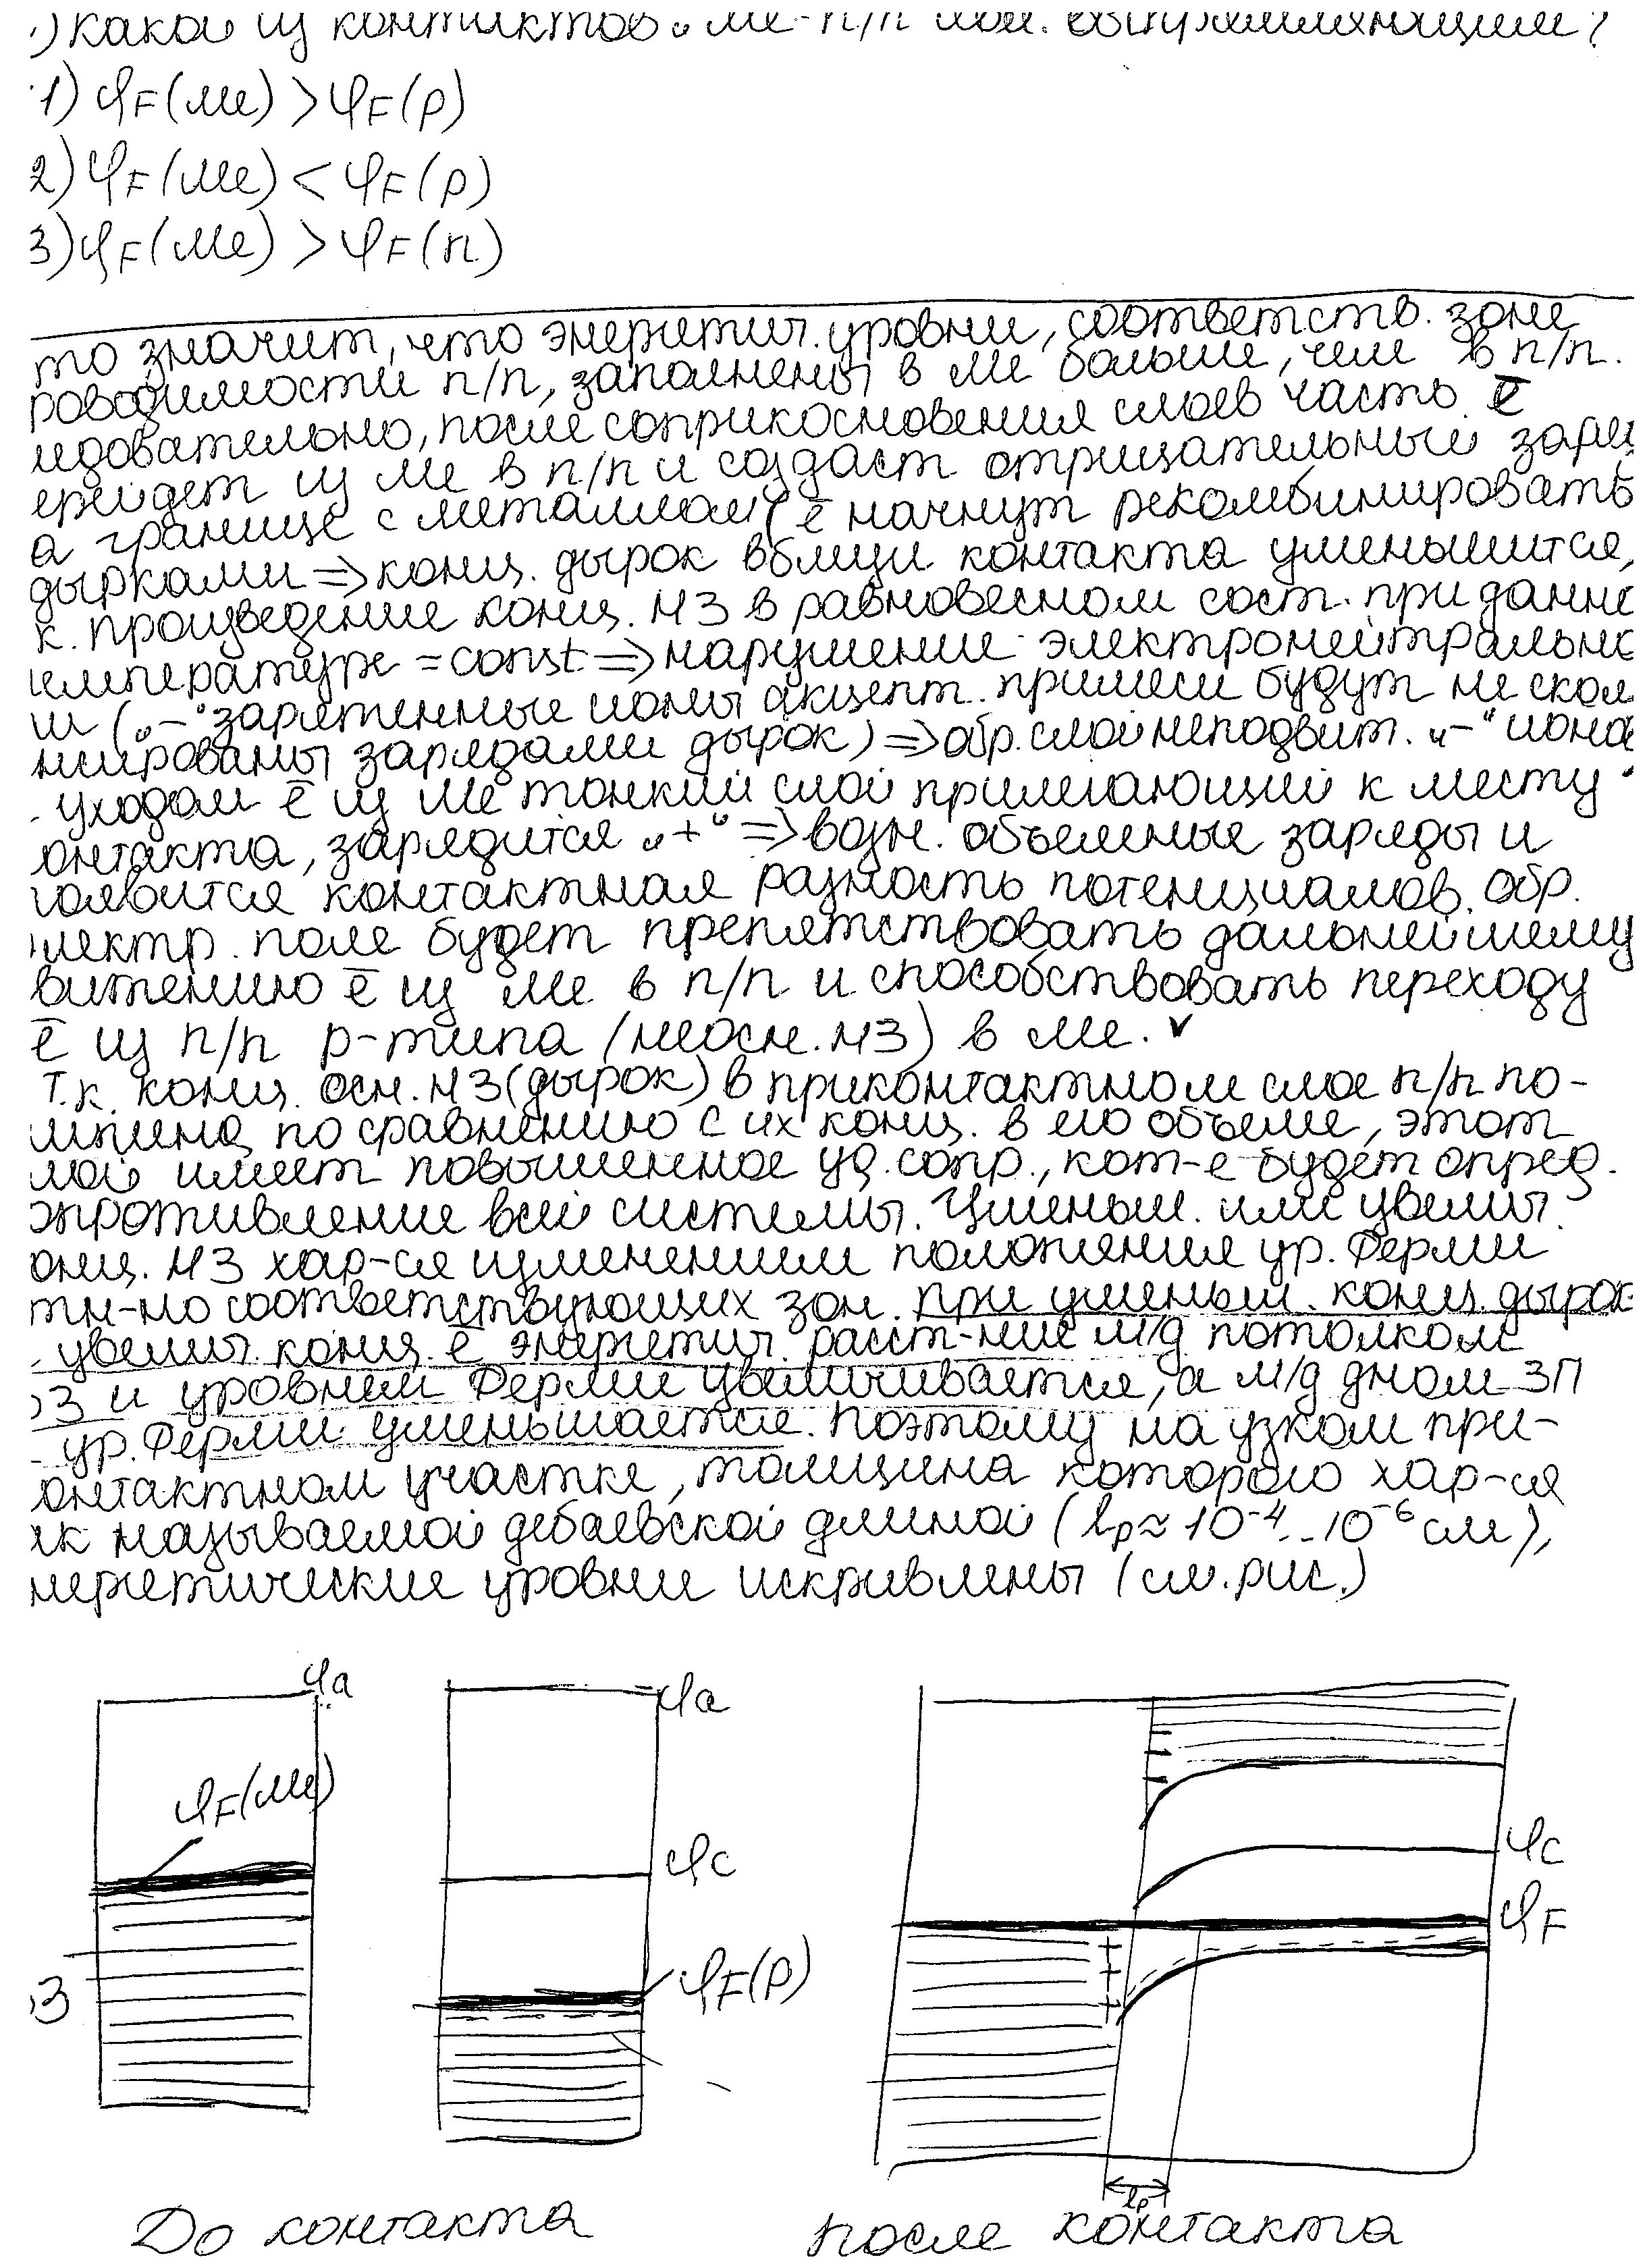 ) како из контактов „ ме-п/п явл. выпрямляющим?
1) φF(Ме) > φF(p)
2) φF(Ме) < φF(p)
3) φF(Ме) > φF(n)
то значит, что энергетич. уровни, соответств. зоне
роводимости п/п, заполнены в Ме больше, чем в п/п.
едовательно, после соприкосновения слоев часть ē
ерейдет из Ме в п/п и создаст отрицательный заря
а границе с металлом (ē начнут рекомбинировать
дырками => конц. дырок вблизи контакта уменьшится,
к. произведение конц. НЗ в равновесном сост. при данно
емпературе = const => нарушение электронейтрально
и („-“ заряженные ионы акцепт. примеси будут не ском
нсированы зарядами дырок) => обр. слой неподвиж. „-“ ионов
уходом ē из Ме тонкий слой прилегающий к месту
онтакта, зарядится „+“ => возн. объемные заряды и
оявится контактная разность потенциалов. Обр.
лектр. поле будет препятствовать дальнейшему
вижению ē из Ме в п/п и способствовать переходу
ē из п/п p-типа (неосн. НЗ) в Ме.
Т.к. конц. осн. НЗ (дырок) в приконтактном слое п/п по-
нижена по сравнению с их конц. в его объеме, этот
лой имеет повышенное уд. сопр., кот-е будет опред.
опротивление всей системы. Уменьш. или увелич.
онц. НЗ хар-ся изменением положения ур. Ферми
тн-но соответствующих зон. При уменьш. конц. дырок
увелич. конц. ē энергетич. расст-ние м/д потолком
ВЗ и уровнем Ферми увеличивается, а м/д дном ЗП
ур. Ферми уменьшается. Поэтому на узком при-
онтактном участке, толщина которого хар-ся
ак называемой дебаевской длиной (lp ≈ 10⁻⁴..10⁻⁶ см),
нергетические уровни искривлены (см. рис.)
φa φa
φF(Ме)
φc φc
φF
φF(p)
З
lp
До контакта После контакта